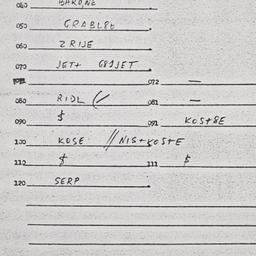 040 BARONE
050 GRABLJE
060 2 RIJE
070 JET+ GBJJET
072 —
080 RIDL ( 081 —
090 $ 091 KOS+SE
100 KOSE // NIS+KOSTE
110 $ 111 $
120 SERP